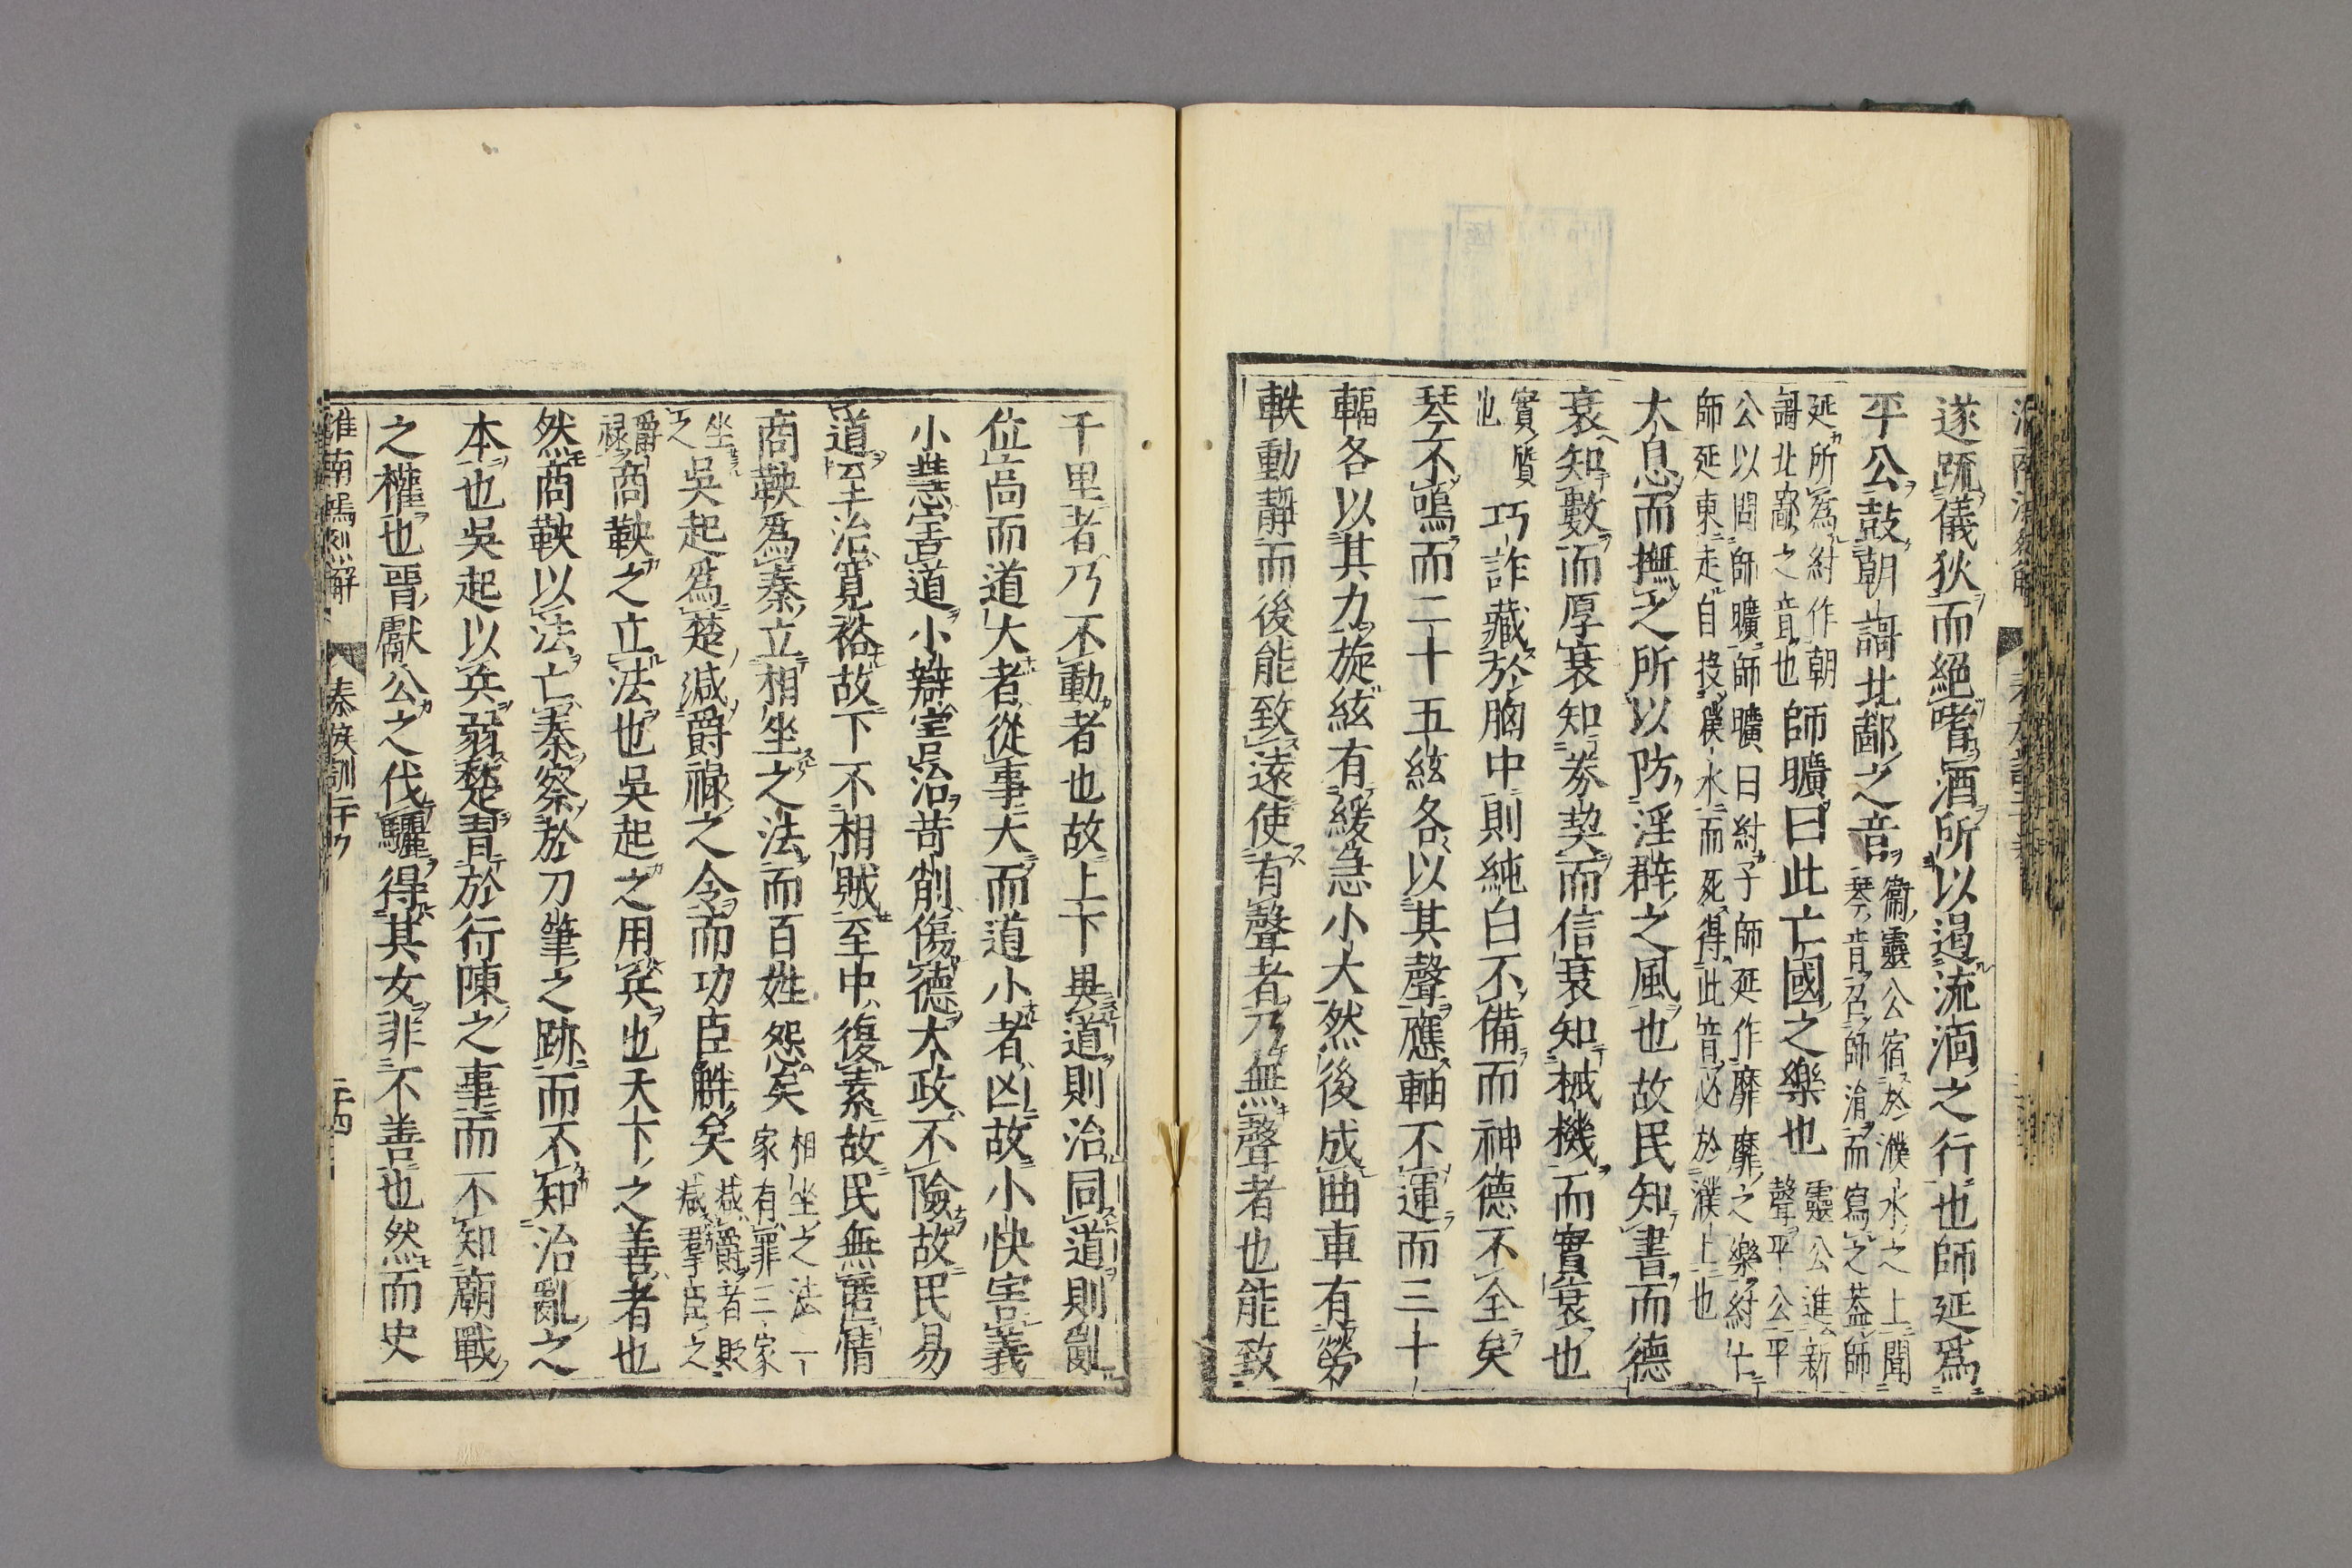 遂疏儀狄而絕嗜酒所以遏流湎之行也師延爲
平公鼓朝謌北鄙之音衞靈公宿於濮水之上聞琴音召師涓而寫之葢師
延所爲紂作朝謌北鄙之音也師曠曰此亡國之樂也靈公進新聲平公平
公以問師曠師曠曰紂子師延作靡靡之樂紂亡師延東走自投濮水而死得此音必於濮上也
太息而撫之所以防淫辟之風也故民知書而德
衰知數而厚衰知券契而信衰知械機而實衰也
實質也巧詐藏於胸中則純白不備而神德不全矣
琴不鳴而二十五絃各以其聲應軸不運而三十
輻各以其力旋絃有緩急小大然後成曲車有勞
軼動靜而後能致遠使有聲者乃無聲者也能致
千里者乃不動者也故上下異道則治同道則亂
位高而道大者從事大而道小者凶故小快害義
小慧害道小辯害治苛削傷德大政不險故民易
道至治寬裕故下不相賊至中復素故民無匿情
商鞅爲秦立相坐之法而百姓怨矣相坐之法一家有罪三家
坐之吳起爲楚減爵祿之令而功臣畔矣減爵者貶減羣臣之
爵祿商鞅之立法也吳起之用兵也天下之善者也
然商鞅以法亡秦察於刀筆之跡而不知治亂之
本也吳起以兵弱楚習於行陳之事而不知廟戰
之權也晉獻公之伐驪得其女非不善也然而史
淮南鴻烈解 秦族訓二十 二十四